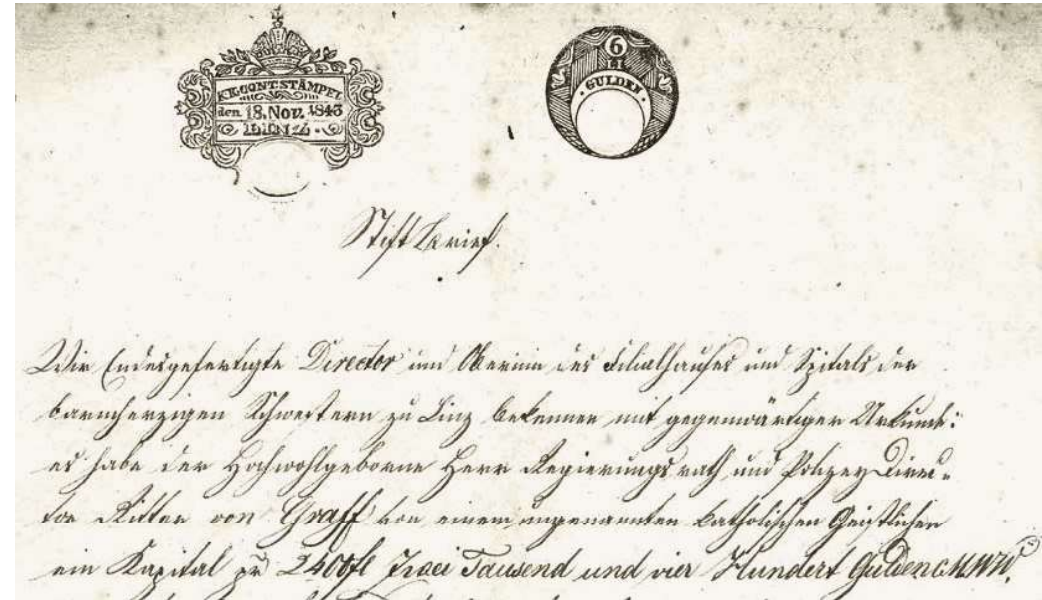 K.K. CONT. STÄMPEL
den 18. Nov. 1843
LINZ
6
GULDEN
Stift Brief.
Wir Endesgefertigte Director und Oberinn des Filialhauses und Spitals der
barmherzigen Schwestern zu Linz bekennen mit gegenwärtiger Urkunde:
es habe der Hochwohlgeborne Herr Regierungsrath und Polizey Direc-
tor Ritter von Graff von einem ungenannten katholischen Geistlichen
ein Kapital pr 2400fl Zwei Tausend und vier Hundert Gulden